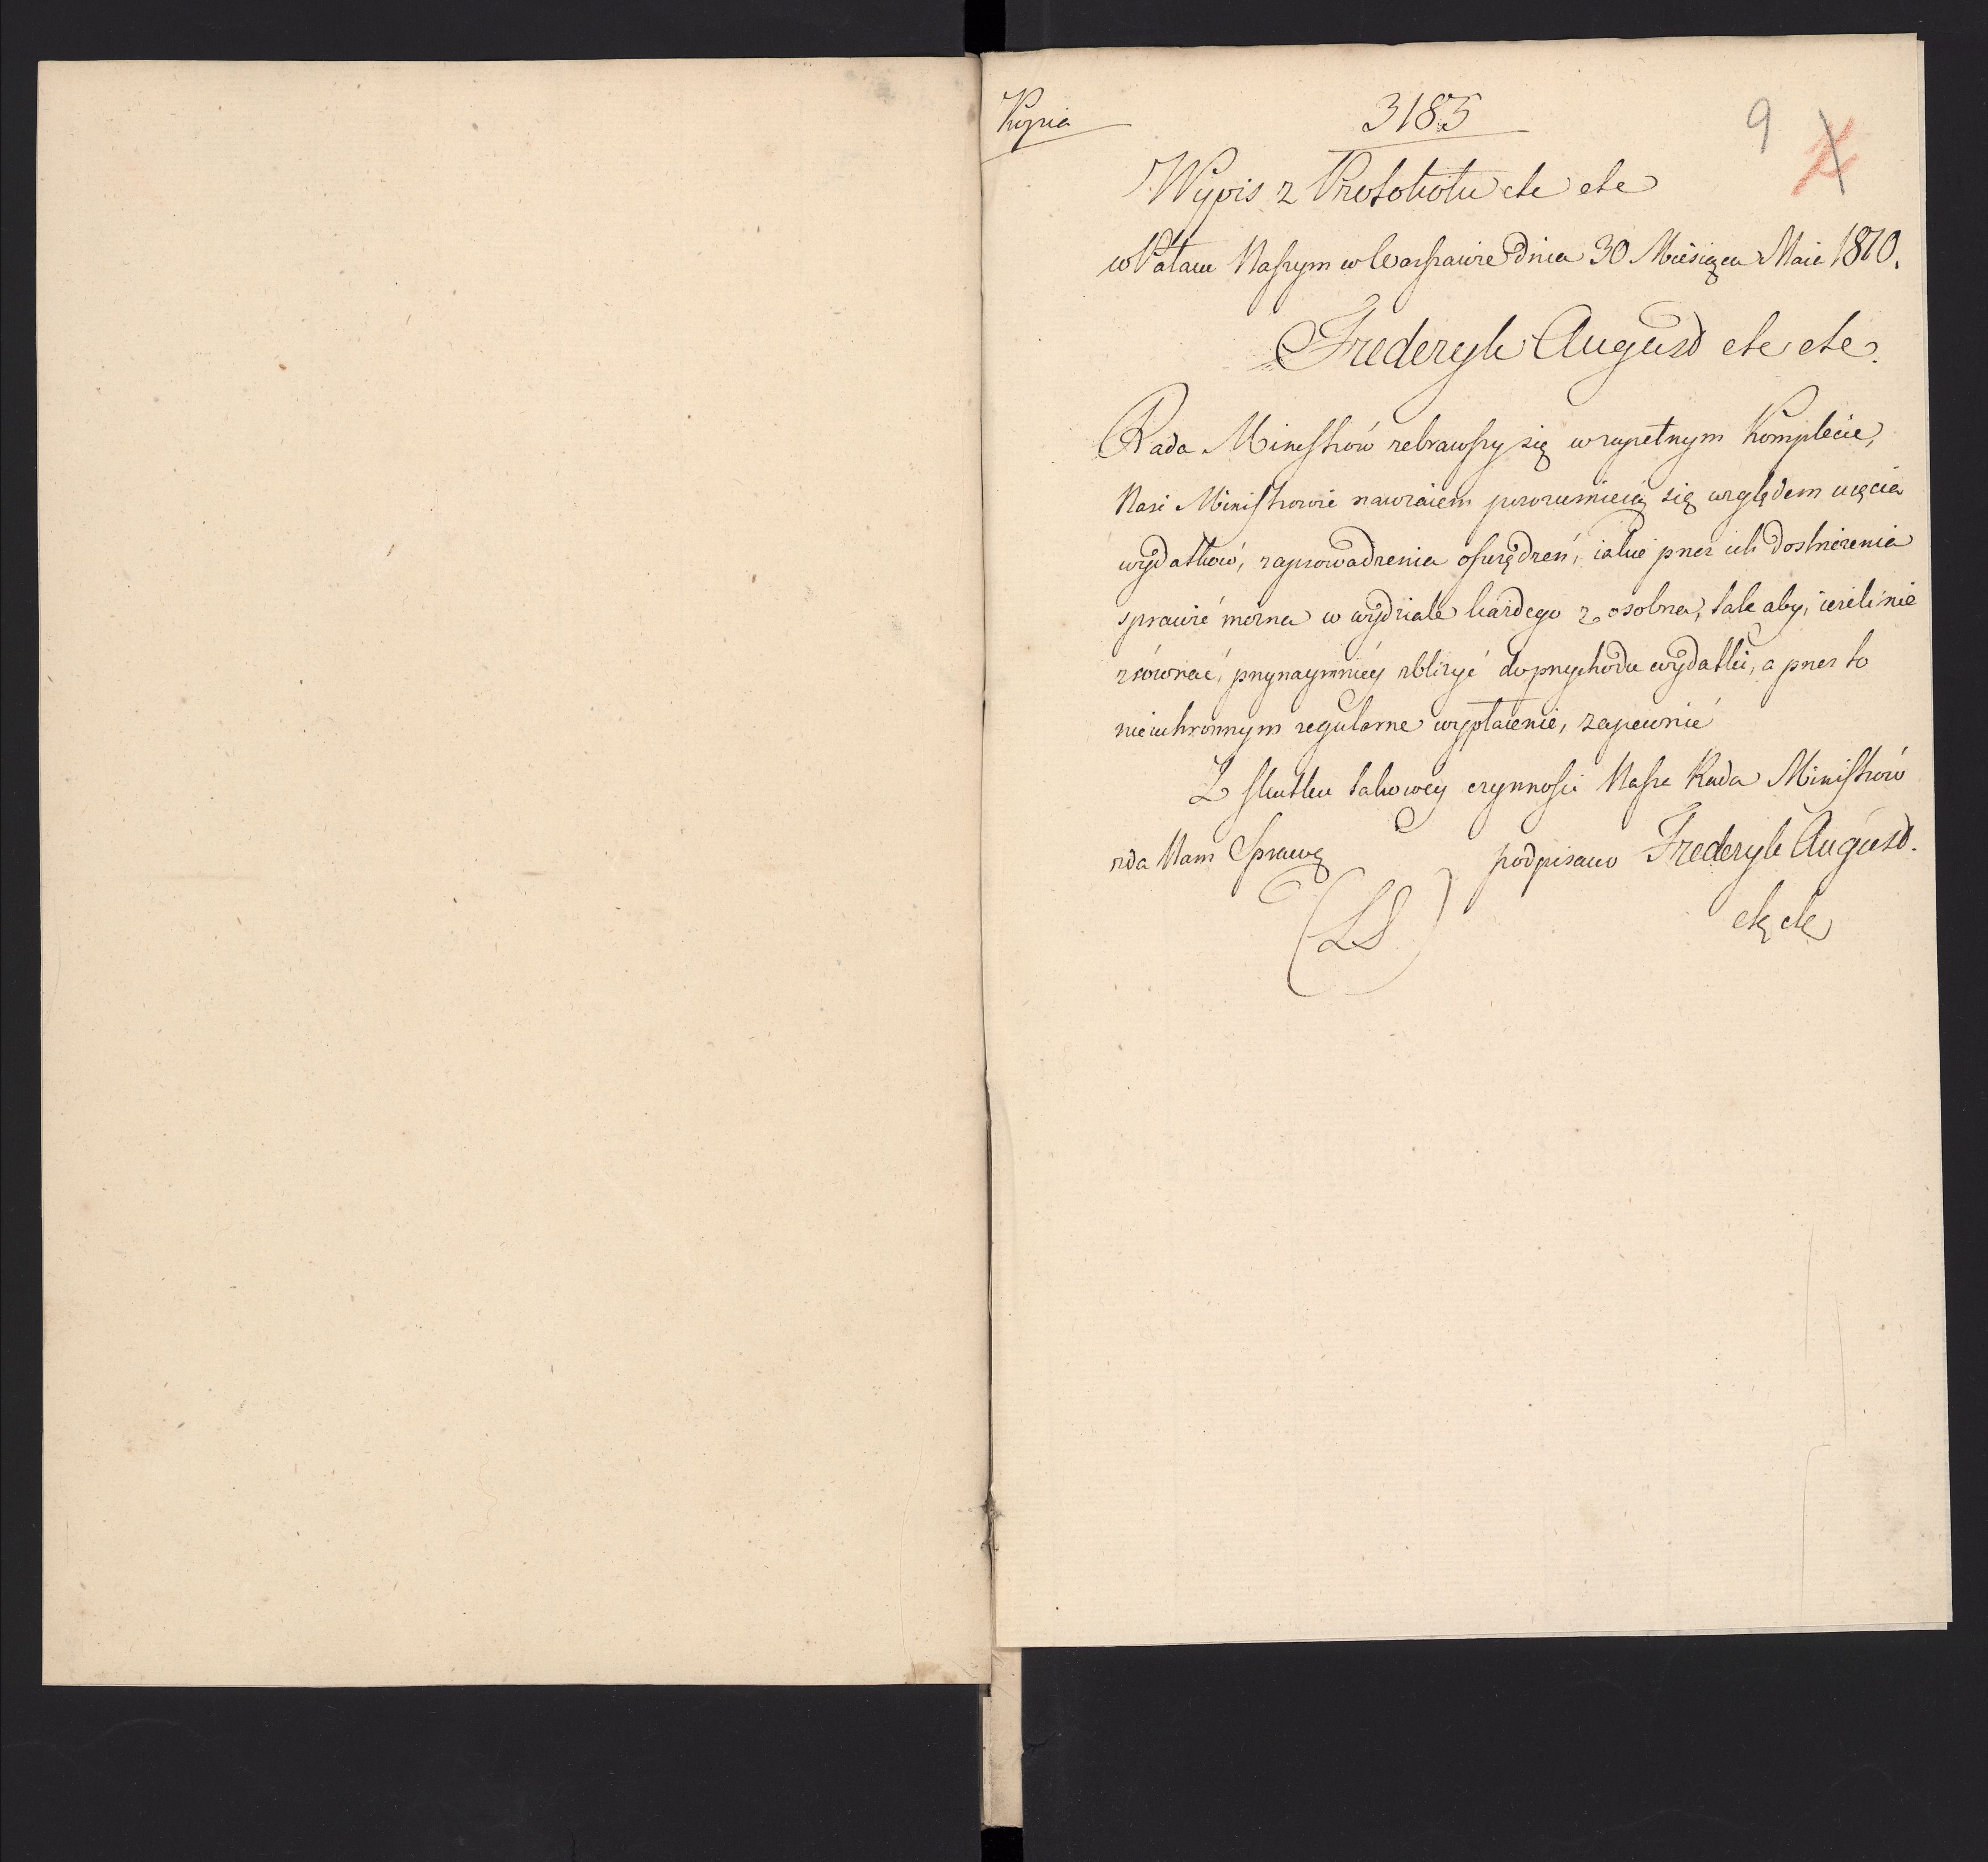 Kopia
3183
9
Wypis z Protokołu etc etc
w Pałacu Naszym w Warszawie Dnia 30 Miesiąca Maia 1810.
Frederyk August etc etc.
Rada Ministrów zebrawszy się w zupełnym Komplecie,
Nasi Ministrowie nawzaiem porozumieią się względem ucięcia
wydatków, zaprowadzenia oszczędzeń, iakie przez ich dostrzeżenia
sprawić można w wydziale każdego z osobna, tak aby, ieżeli nie
zrównać, przynaymniéy zbliżyć do przychodu wydatki, a przez to
nieuchronnym regularne wypłacenie, zapewnić
Z skutku takowey czynności Nasza Rada Ministrów
zda Nam Sprawę podpisano Frederyk August.
(LS) etc etc